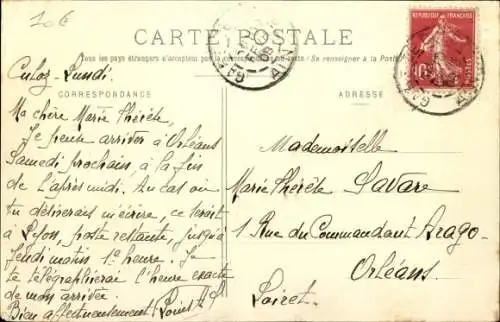 10€
CARTE POSTALE
Tous les pays étrangers n'acceptent pas la
se renseigner à la Poste
CORRESPONDANCE
ADRESSE
RÉPUBLIQUE FRANÇAISE
10c
POSTES
GARE
AIN
09
Culoz - Lundi.
Ma chère Marie Thérèse,
Je pense arriver à Orléans
Samedi prochain, à la fin
de l'après midi. Au cas où
tu désirerais m'écrire, ce serait
à Lyon, poste restante, jusqu'à
Jeudi matin 1e heure. Je
te télégraphierai l'heure exacte
de mon arrivée.
Bien affectueusement
Mademoiselle
Marie Thérèse Savare
1 Rue du Commandant Arago-
Orléans
Loiret.